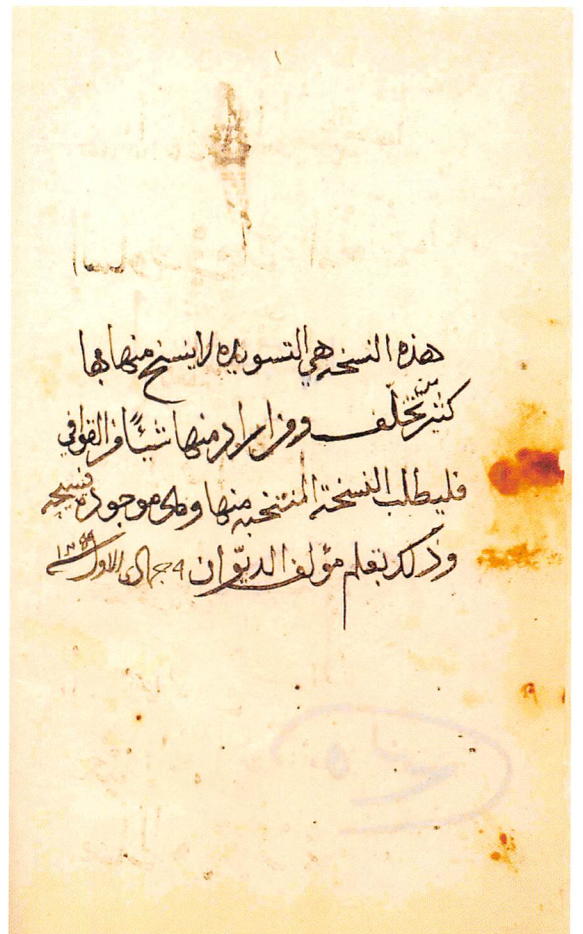 هذه النسخه هي التسويده لا ينسخ منها بها
كثير من تخلف ومن اراد منها شيئًا من القوافي
فليطلب النسخة المنتخبه منها وهى موجوده
وذلك بقلم مؤلف الديوان ٩ جمادى الاول سنة